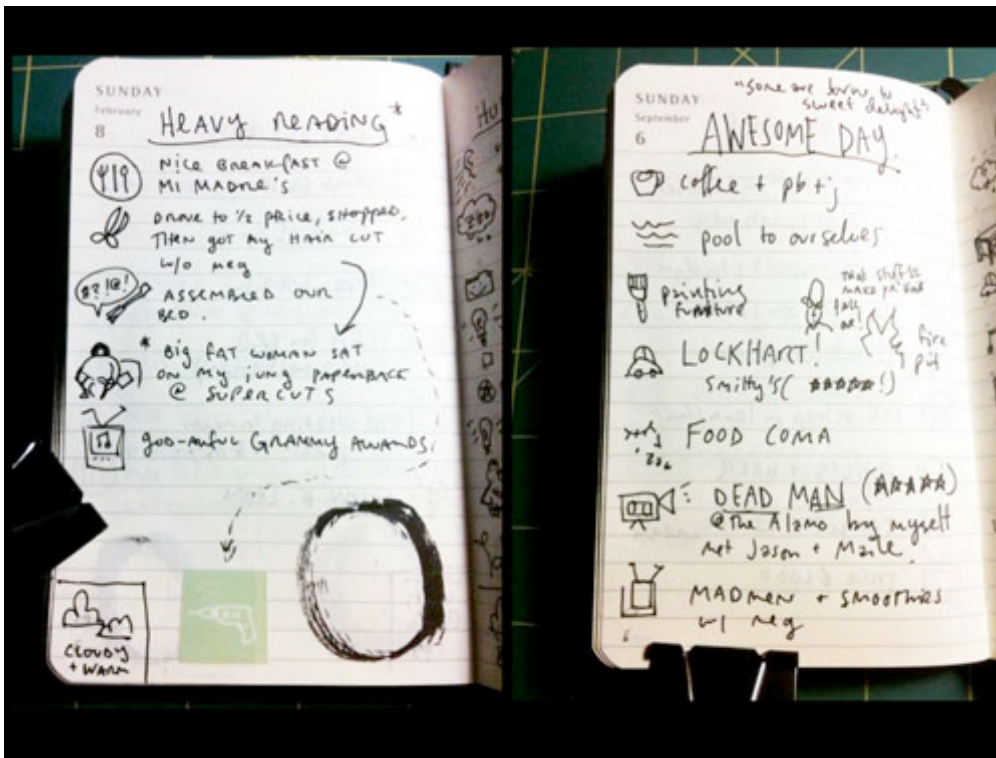 SUNDAY
February
8
HEAVY READING*
NICE BREAKFAST @
MI MADRE'S
DROVE TO 1/2 PRICE, SHOPPED,
THEN GOT MY HAIR CUT
W/O MEG
#?!@!
ASSEMBLED OUR
BED.
* BIG FAT WOMAN SAT
ON MY JUNG PAPERBACK
@ SUPERCUTS
GOD-AWFUL GRAMMY AWARDS.
CLOUDY
+ WARM
SUNDAY
September
6
"some are born to
sweet delight"
AWESOME DAY.
coffee + pb + j
pool to ourselves
painting
furniture
fire
pit
LOCKHART!
Smitty's ( ★★★★★!)
FOOD COMA
DEAD MAN (★★★★★)
@ The Alamo by myself
met Jason +
MADMEN + SMOOTHIES
w/ meg
6